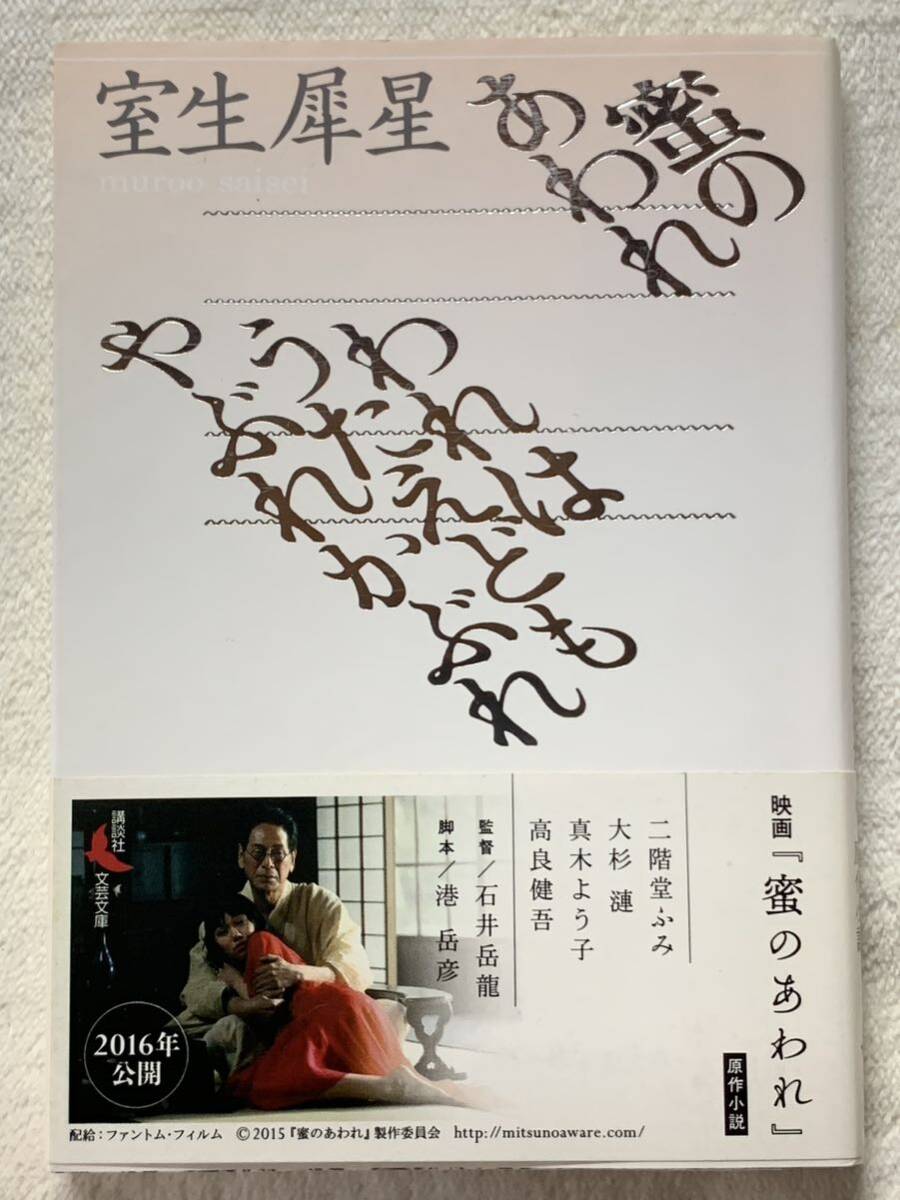 室生犀星
muroo saisei
蜜の
あわれ
われは
うたえども
やぶれかぶれ
映画『蜜のあわれ』
原作小説
二階堂ふみ
大杉 漣
真木よう子
高良健吾
監督／石井岳龍
脚本／港 岳彦
講談社
文芸文庫
2016年
公開
配給：ファントム・フィルム ©2015『蜜のあわれ』製作委員会 http://mitsunoaware.com/